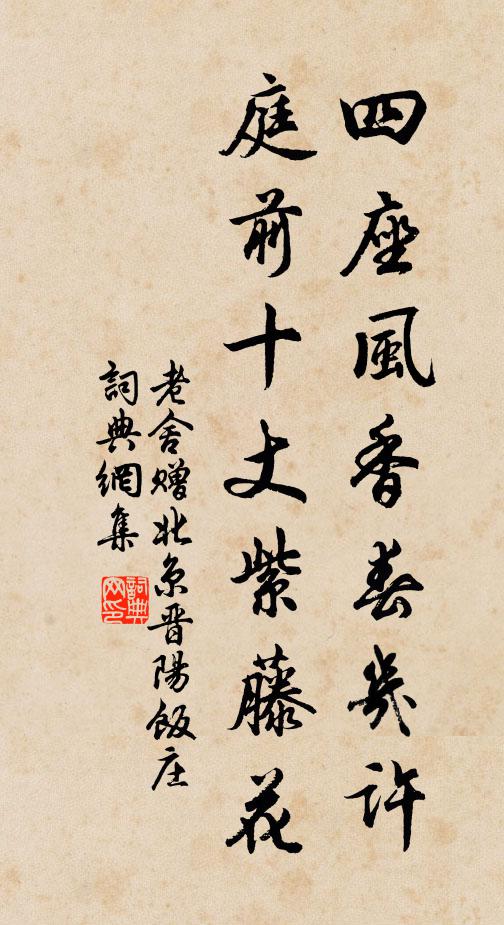 四座風香春幾許
庭前十丈紫藤花
老舍赠北京晋陽飯庄
詞典網集
詞典网印